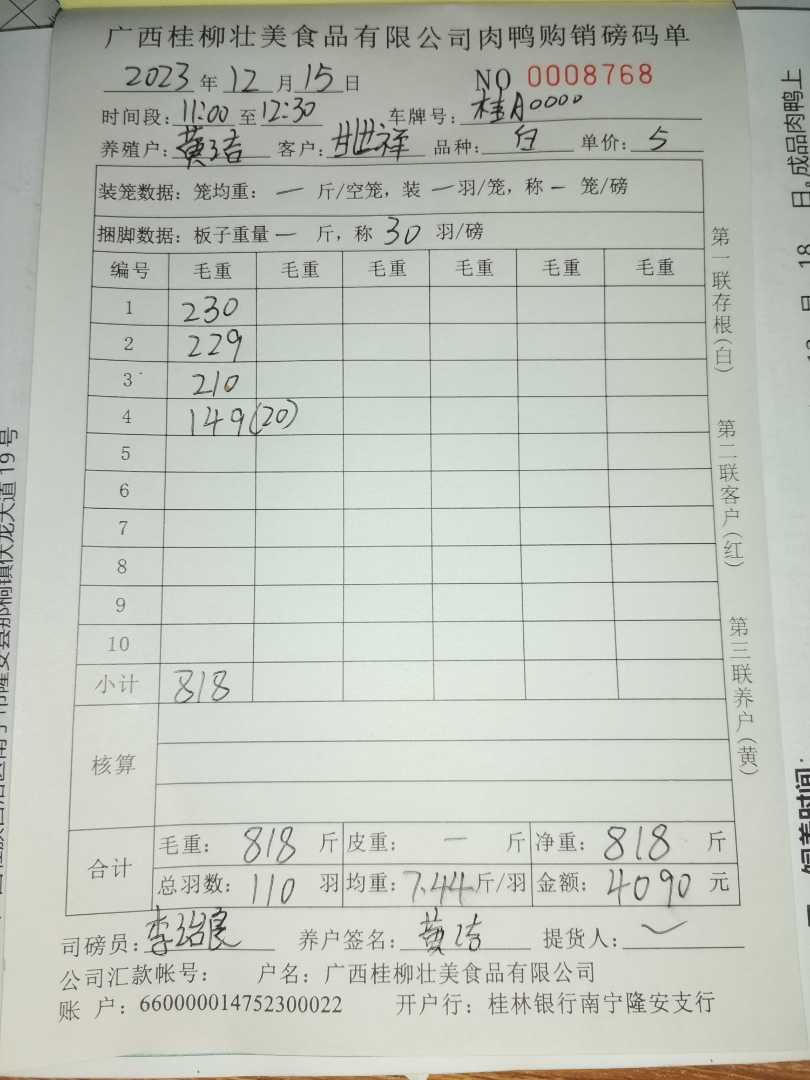 广西桂柳壮美食品有限公司肉鸭购销磅码单
2023年12月15日 NO 0008768
时间段：11:00至12:30 车牌号：桂A0000
养殖户：黄洁 客户：甘世祥 品种：白 单价：5
装笼数据：笼均重：一斤/空笼，装一羽/笼，称一笼/磅
捆脚数据：板子重量一斤，称30羽/磅
编号 毛重 毛重 毛重 毛重 毛重 毛重
1 230
2 229
3 210
4 149(20)
5
6
7
8
9
10
小计 818
核算
合计 毛重：818斤 皮重：一斤 净重：818斤
总羽数：110羽 均重：7.44斤/羽 金额：4090元
司磅员：李绍良 养户签名：黄洁 提货人：
公司汇款帐号： 户名：广西桂柳壮美食品有限公司
账 户：660000014752300022 开户行：桂林银行南宁隆安支行
第一联存根（白）
第二联客户（红）
第三联养户（黄）
日。成品肉鸭上
月 18
饲养时间：
隆安县那桐镇伏龙大道19号